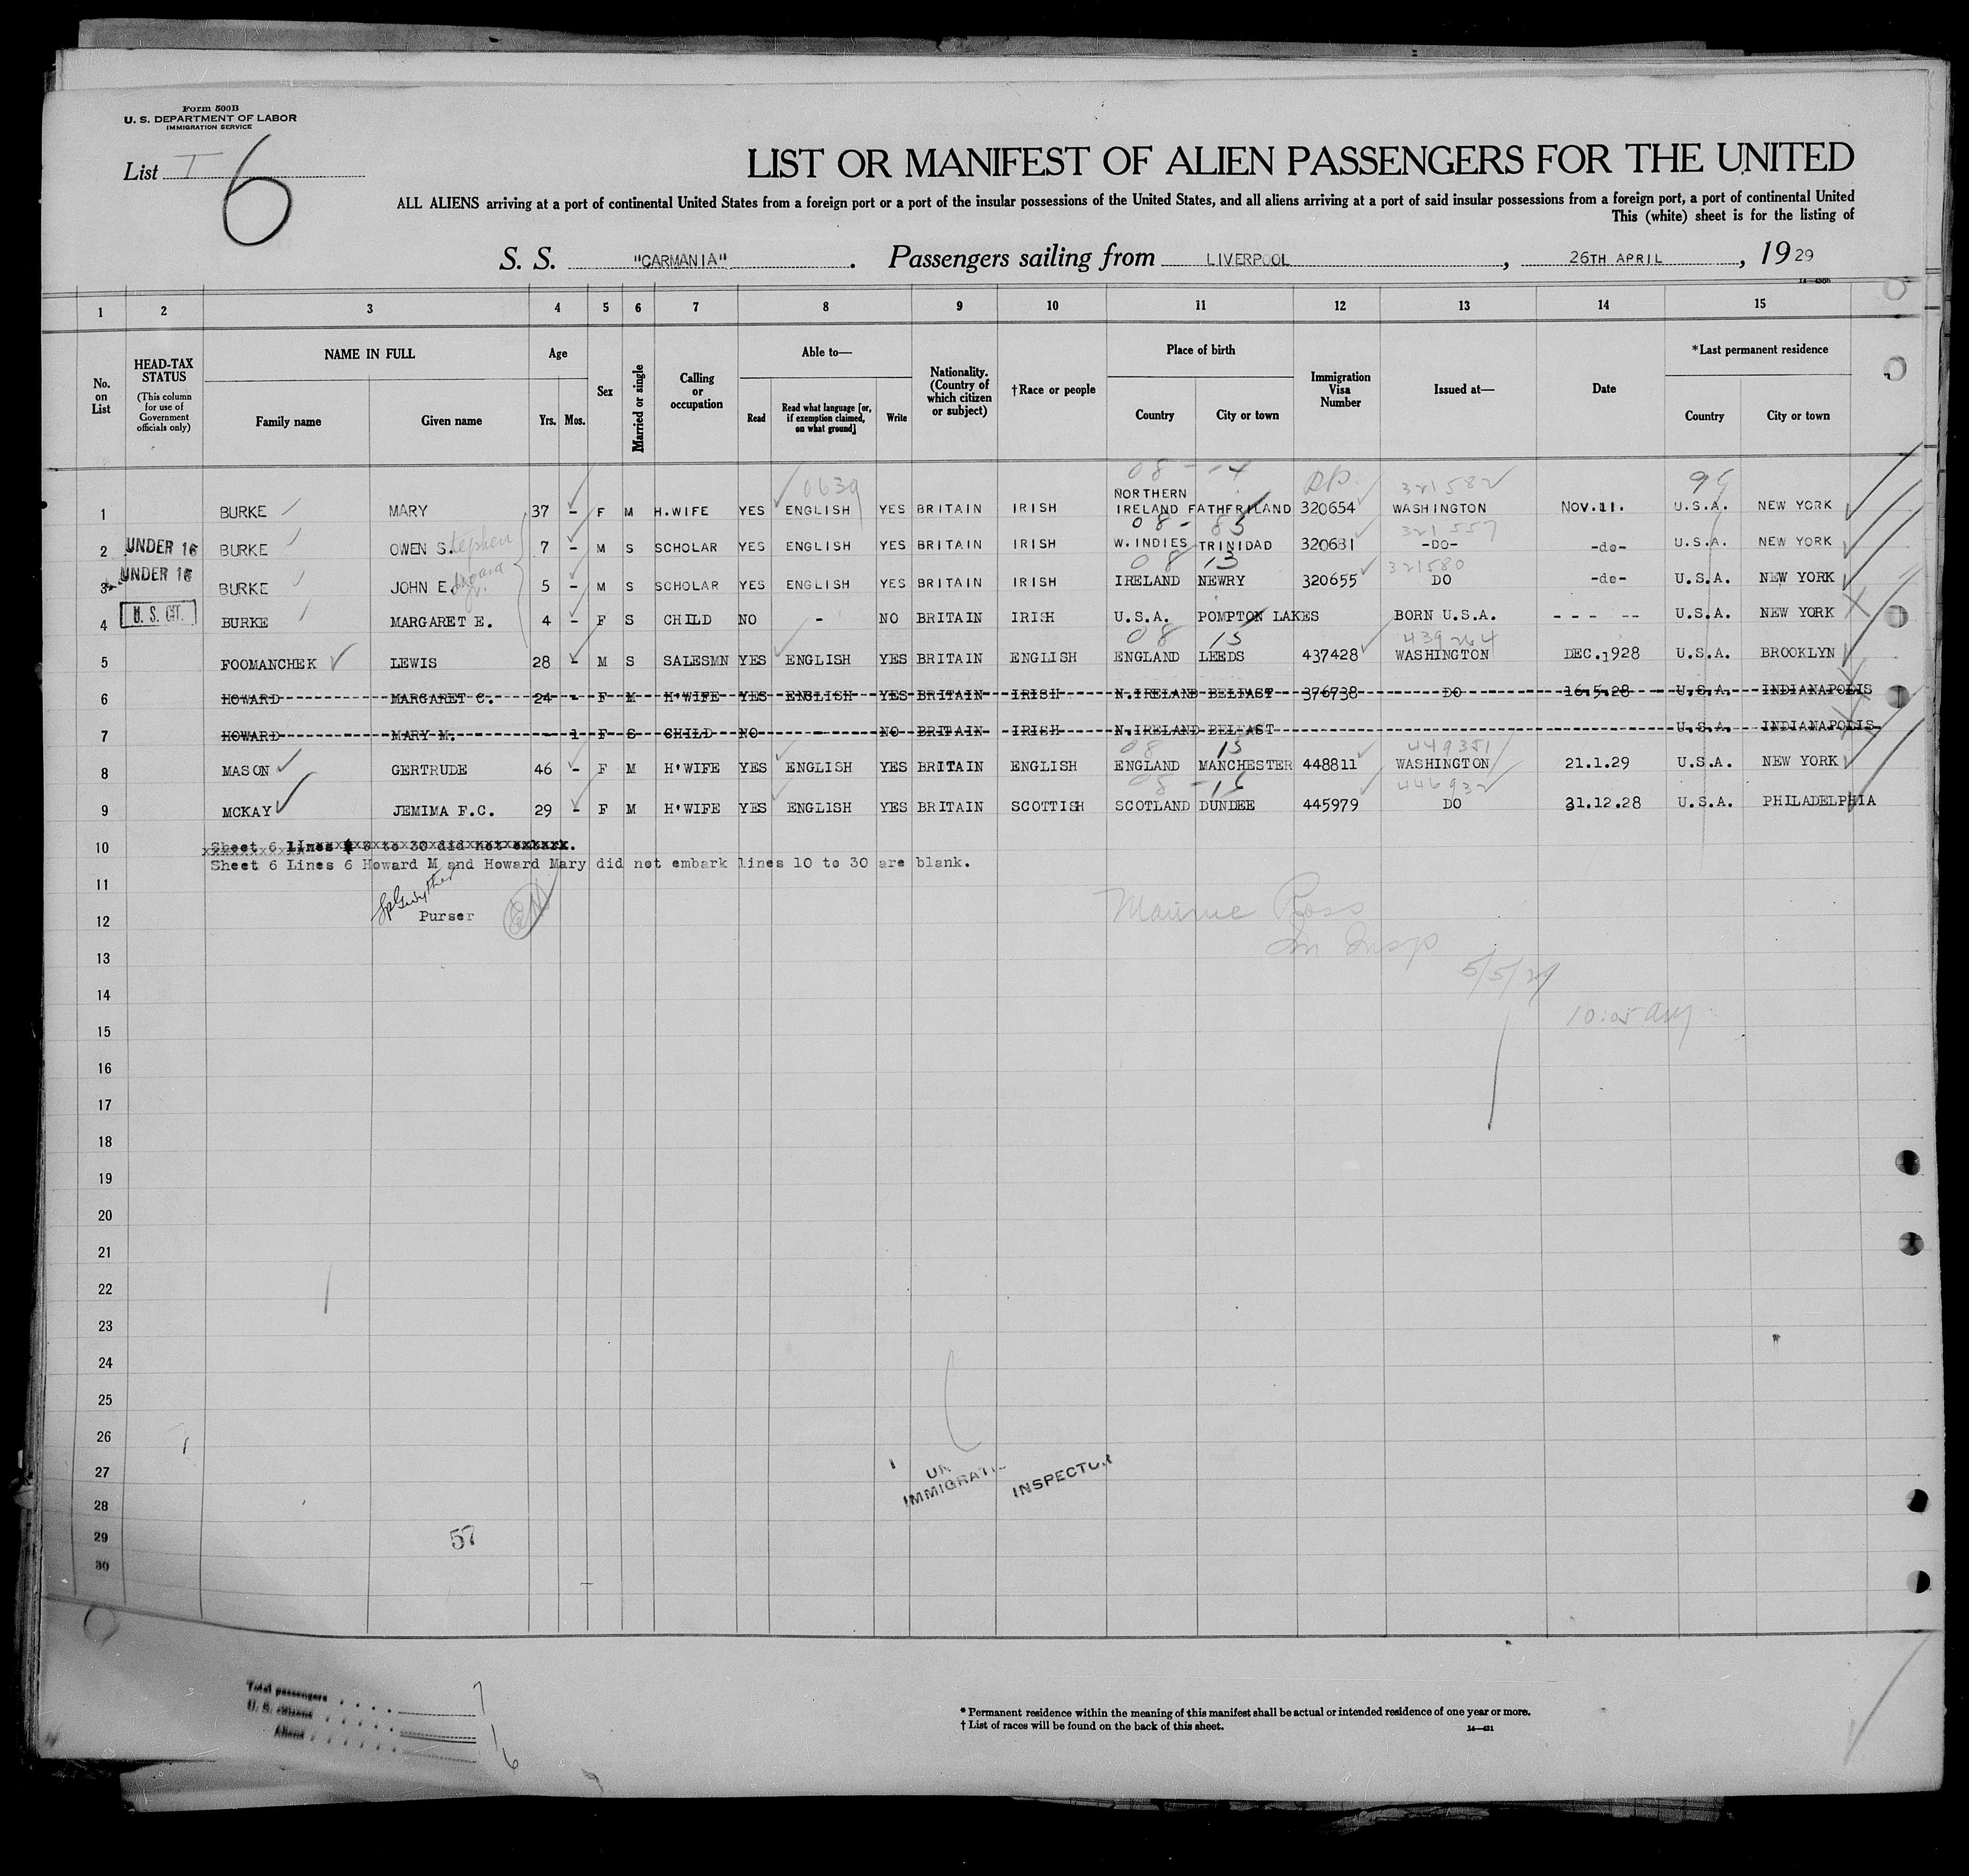 Form 500B
U. S. DEPARTMENT OF LABOR
IMMIGRATION SERVICE
List I
6
LIST OR MANIFEST OF ALIEN PASSENGERS FOR THE UNITED
ALL ALIENS arriving at a port of continental United States from a foreign port or a port of the insular possessions of the United States, and all aliens arriving at a port of said insular possessions from a foreign port, a port of continental United
This (white) sheet is for the listing of
S. S. "CARMANIA". Passengers sailing from LIVERPOOL, 26TH APRIL, 1929
1 2 3 4 5 6 7 8 9 10 11 12 13 14 15
No. on List
HEAD-TAX STATUS (This column for use of Government officials only)
NAME IN FULL
Family name
Given name
Age
Yrs. Mos.
Sex
Married or single
Calling or occupation
Able to—
Read
Read what language [or, if exemption claimed, on what ground]
Write
Nationality. (Country of which citizen or subject)
†Race or people
Place of birth
Country
City or town
Immigration Visa Number
Issued at—
Date
*Last permanent residence
Country
City or town
0639 08 - -4 321582 99
1 BURKE MARY 37 - F M H.WIFE YES ENGLISH YES BRITAIN IRISH NORTHERN IRELAND FATHERLAND 320654 WASHINGTON Nov.11. U.S.A. NEW YORK
08 - 85 321557
2 UNDER 16 BURKE OWEN S.tephen 7 - M S SCHOLAR YES ENGLISH YES BRITAIN IRISH W. INDIES TRINIDAD 320631 -DO- -do- U.S.A. NEW YORK
08 13 321580
3 UNDER 16 BURKE JOHN E. 5 - M S SCHOLAR YES ENGLISH YES BRITAIN IRISH IRELAND NEWRY 320655 DO -do- U.S.A. NEW YORK
4 U. S. CIT. BURKE MARGARET E. 4 - F S CHILD NO - NO BRITAIN IRISH U.S.A. POMPTON LAKES BORN U.S.A. - - - -- U.S.A. NEW YORK
08 15 439264
5 FOOMANCHEK LEWIS 28 - M S SALESMN YES ENGLISH YES BRITAIN ENGLISH ENGLAND LEEDS 437428 WASHINGTON DEC.1928 U.S.A. BROOKLYN
6 HOWARD MARGARET C. 24 - F M H'WIFE YES ENGLISH YES BRITAIN IRISH N.IRELAND BELFAST 376738 DO 16.5.28 U.S.A. INDIANAPOLIS
7 HOWARD MARY M. - 1 F S CHILD NO - NO BRITAIN IRISH N.IRELAND BELFAST U.S.A. INDIANAPOLIS
08 15 449351
8 MASON GERTRUDE 46 - F M H'WIFE YES ENGLISH YES BRITAIN ENGLISH ENGLAND MANCHESTER 448811 WASHINGTON 21.1.29 U.S.A. NEW YORK
08 -16 446932
9 MCKAY JEMIMA F.C. 29 - F M H'WIFE YES ENGLISH YES BRITAIN SCOTTISH SCOTLAND DUNDEE 445979 DO 31.12.28 U.S.A. PHILADELPHIA
10 Sheet 6 lines 8 to 30 did not embark.
Sheet 6 Lines 6 Howard M and Howard Mary did not embark lines 10 to 30 are blank.
11
12 Purser
Maurice Ross
Im Insp
13 5/5/29
14
15 10:05 am
16
17
18
19
20
21
22
23
24
25
26
27
IMMIGRATI INSPECTOR
28
29 57
30
Total passengers 7
U. S. citizens 1
Aliens 6
* Permanent residence within the meaning of this manifest shall be actual or intended residence of one year or more.
† List of races will be found on the back of this sheet.